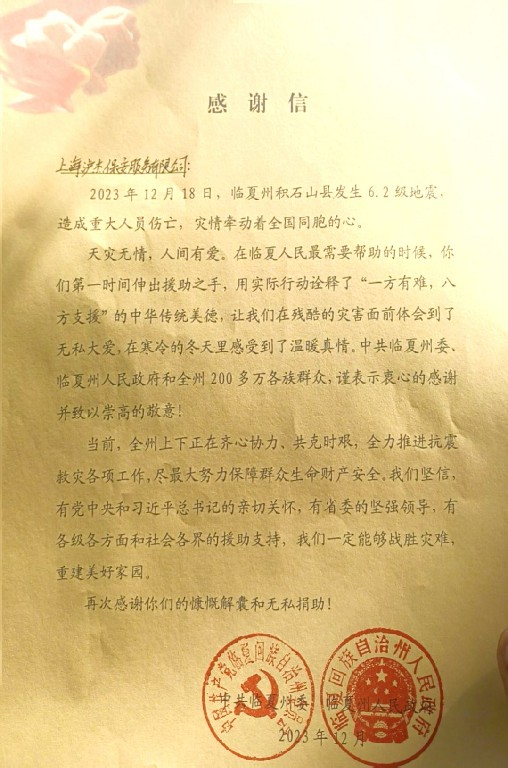 感谢信
上海沪杰保安服务有限公司：
2023年12月18日，临夏州积石山县发生6.2级地震，
造成重大人员伤亡，灾情牵动着全国同胞的心。
天灾无情，人间有爱。在临夏人民最需要帮助的时候，你
们第一时间伸出援助之手，用实际行动诠释了“一方有难，八
方支援”的中华传统美德，让我们在残酷的灾害面前体会到了
无私大爱，在寒冷的冬天里感受到了温暖真情。中共临夏州委、
临夏州人民政府和全州200多万各族群众，谨表示衷心的感谢
并致以崇高的敬意！
当前，全州上下正在齐心协力、共克时艰，全力推进抗震
救灾各项工作，尽最大努力保障群众生命财产安全。我们坚信，
有党中央和习近平总书记的亲切关怀，有省委的坚强领导，有
各级各方面和社会各界的援助支持，我们一定能够战胜灾难，
重建美好家园。
再次感谢你们的慷慨解囊和无私捐助！
中国共产党临夏回族自治州委员会
临夏回族自治州人民政府
中共临夏州委 临夏州人民政府
2023年12月